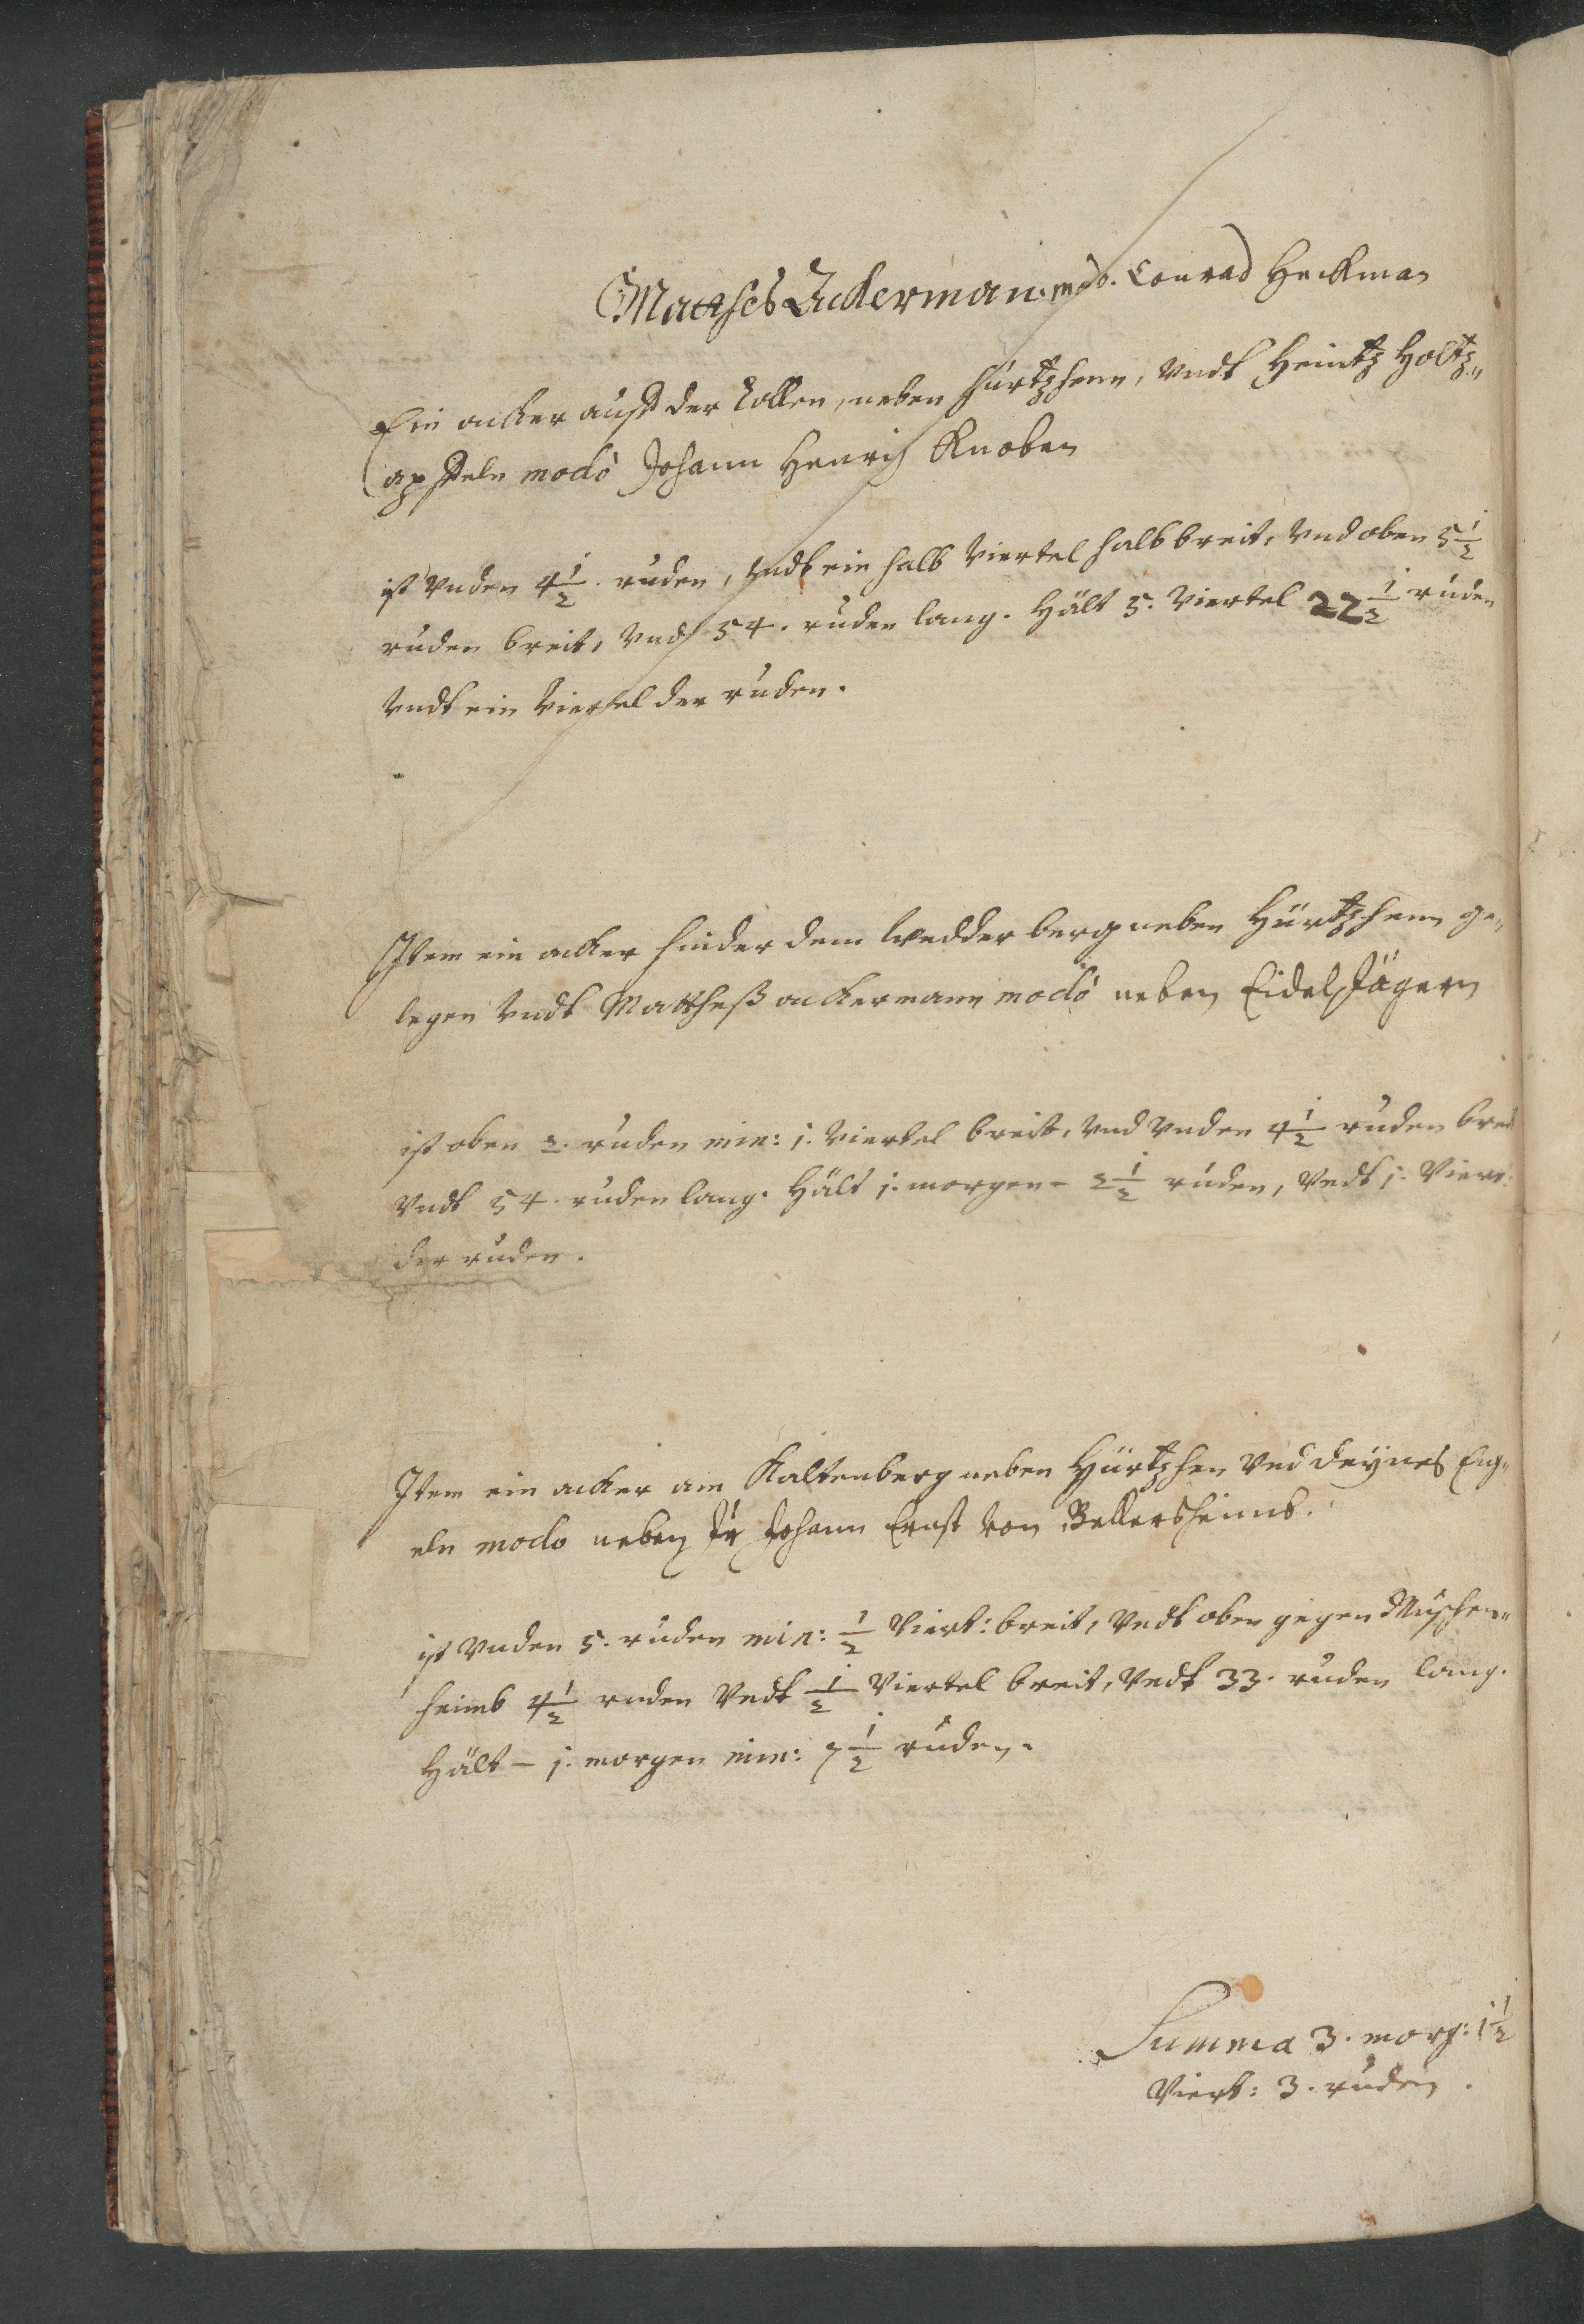 Matthes Ackerman. mod. Conrad Heckman
Ein acker auff der Lollen, neben Hürtzhenn, Vndt Heintz Holtz„
apffeln modo Johann Henrich Knoben
ist Vnden 4 1/2. ruden, Vndt ein halb Viertel halb breit, Vnd oben 5 1/2
ruden breit, Vnd 54. ruden lang. Hält 5. Viertel 22 1/2 ruden
Vndt ein Viertel der ruden.
Item ein acker hinder dem Wedderberg neben Hürtzhenn ge„
legen Vndt Mattheß ackermann modo neben Eidel Jägern
ist oben 2. ruden min: j. Viertel breit, Vnd Vnden 4 1/2 ruden breit
Vndt 54. ruden lang. Hält j. morgen - 2 1/2 ruden, Vndt j. Viert:
der ruden.
Item ein acker am Kaltenberg neben Hürtzhen Vnd Deynes Eng„
eln modo neben Jr Johann Ernst Von Bellersheimb.
ist Vnden 5. ruden min: 1/2 Viert: breit, Vndt oben gegen Muschen„
heimb 4 1/2 ruden Vndt 1/2 Viertel breit, Vndt 33. ruden lang.
Hält - j. morgen min: 7 1/2 ruden.
Summa 3. morg: 1 1/2
Viert: 3. ruden.